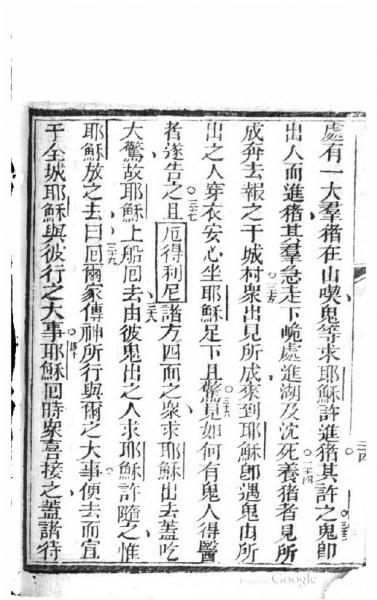 處有一大羣猪在山喫鬼等求耶穌許進猪其許之鬼即
出人而進猪其羣急走下崄處進湖及沈死養猪者見所
成奔去報之于城村衆出見所成來到耶穌即遇鬼由所
出之人穿衣安心坐耶穌足下且驚見如何有鬼人得醫
者遂告之且厄得利尼諸方四面之衆求耶穌出去蓋吃
大驚故耶穌上船囘去由彼鬼出之人求耶穌許隨之惟
耶穌放之去曰囘爾家傳神所行與爾之大事便去而宣
于全城耶穌與彼行之大事耶穌囘時衆喜接之蓋諸待
Google